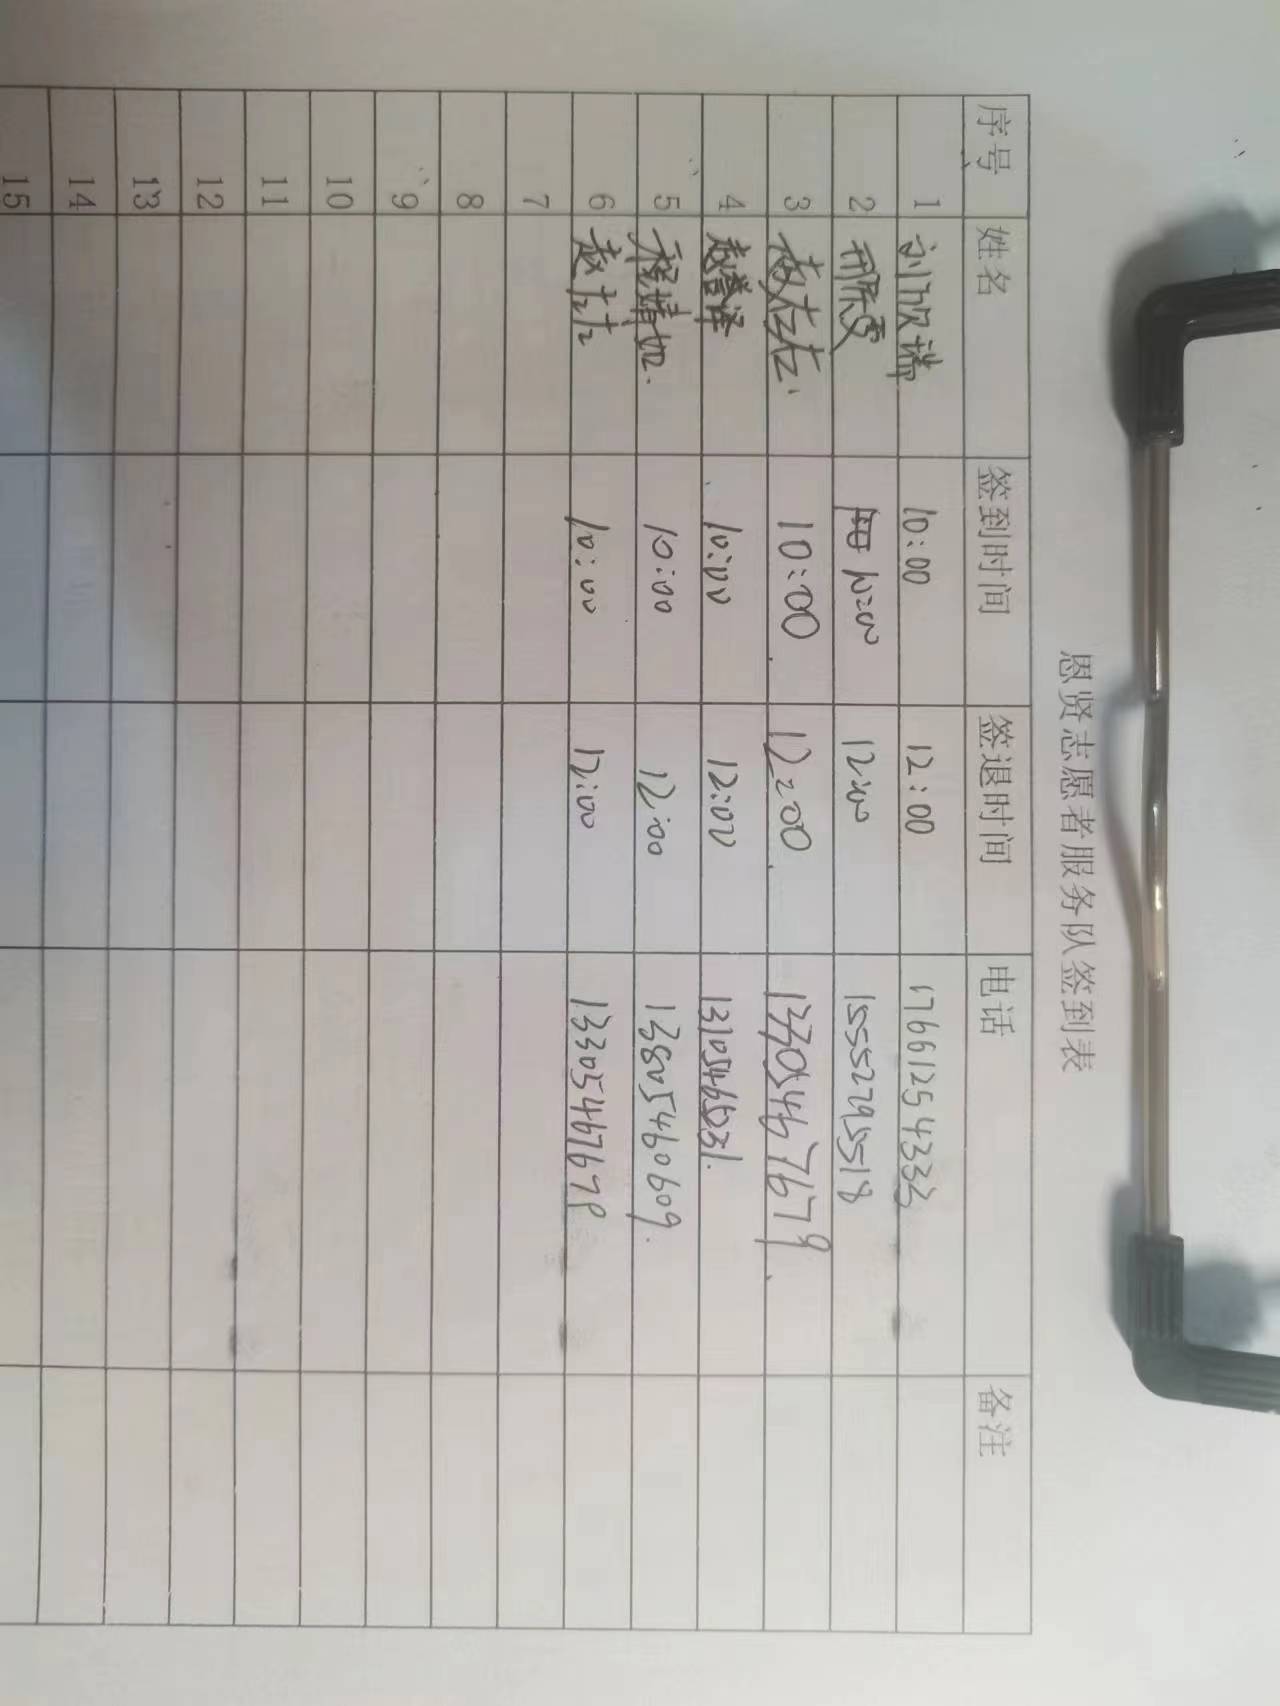 恩贤志愿者服务队签到表
序号 姓名 签到时间 签退时间 电话 备注
1 刘欣瑞 10:00 12:00 17661254333
2 邢熙雯 10:00 12:00 15552795518
3 袁左左 10:00 12:00 13305467679
4 赵誉泽 10:00 12:00
5 程婧如 10:00 12:00 13805460609
6 赵 10:00 12:00 13305467679
7
8
9
10
11
12
13
14
15